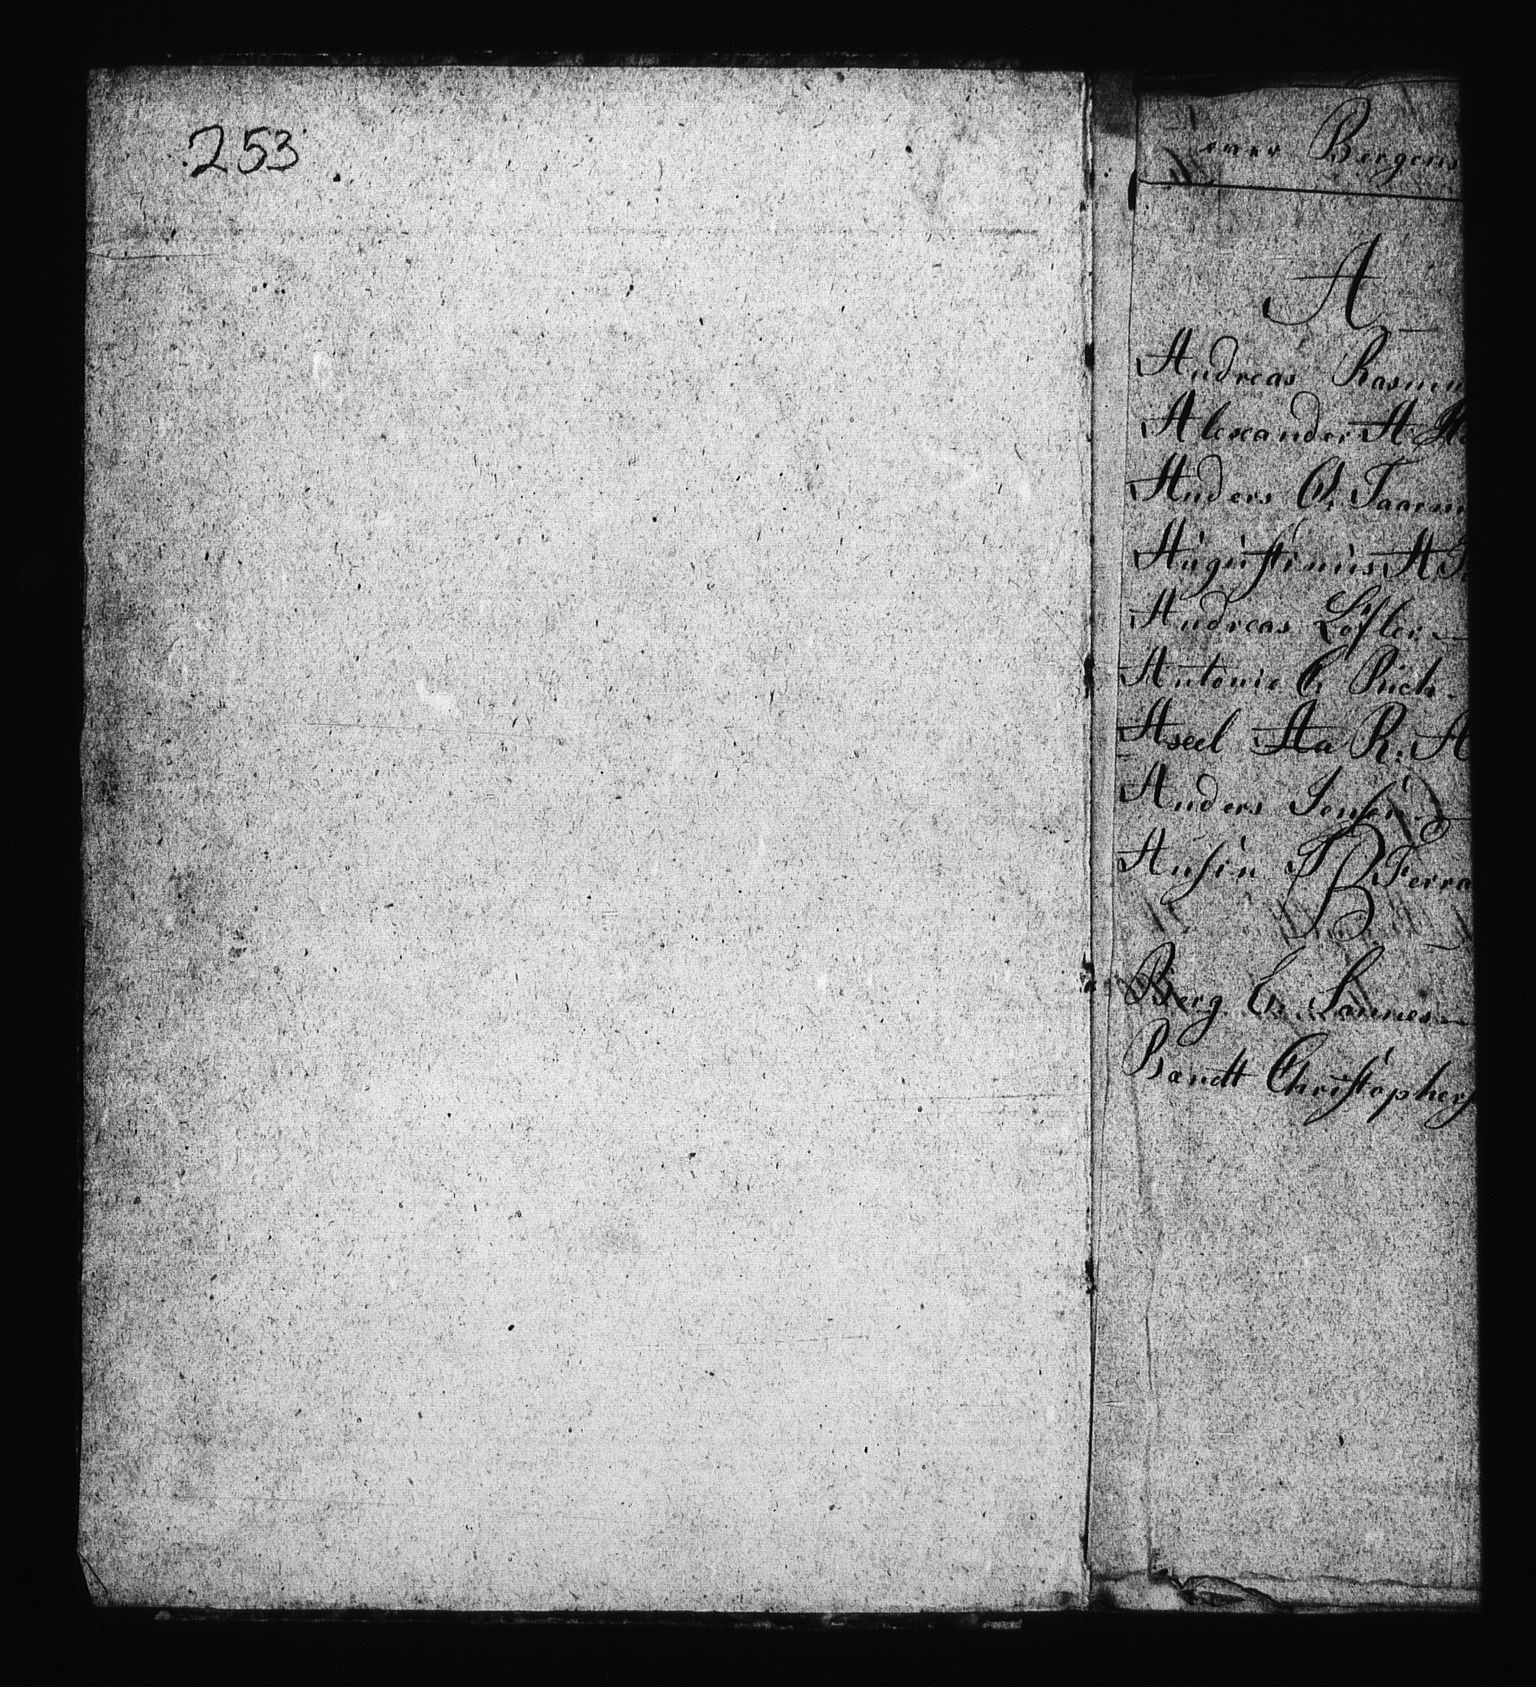 253
over Bergens
A
Andreas Rasmu
Alexander A.
Anders O. Taarn
Augustinus A.
Andreas Löfler
Antonie C. Rüch
Axel Aa R. A
Anders Jensen
Ansin T. Ferra
B
Berg C. Lannes
Bændt Christophers